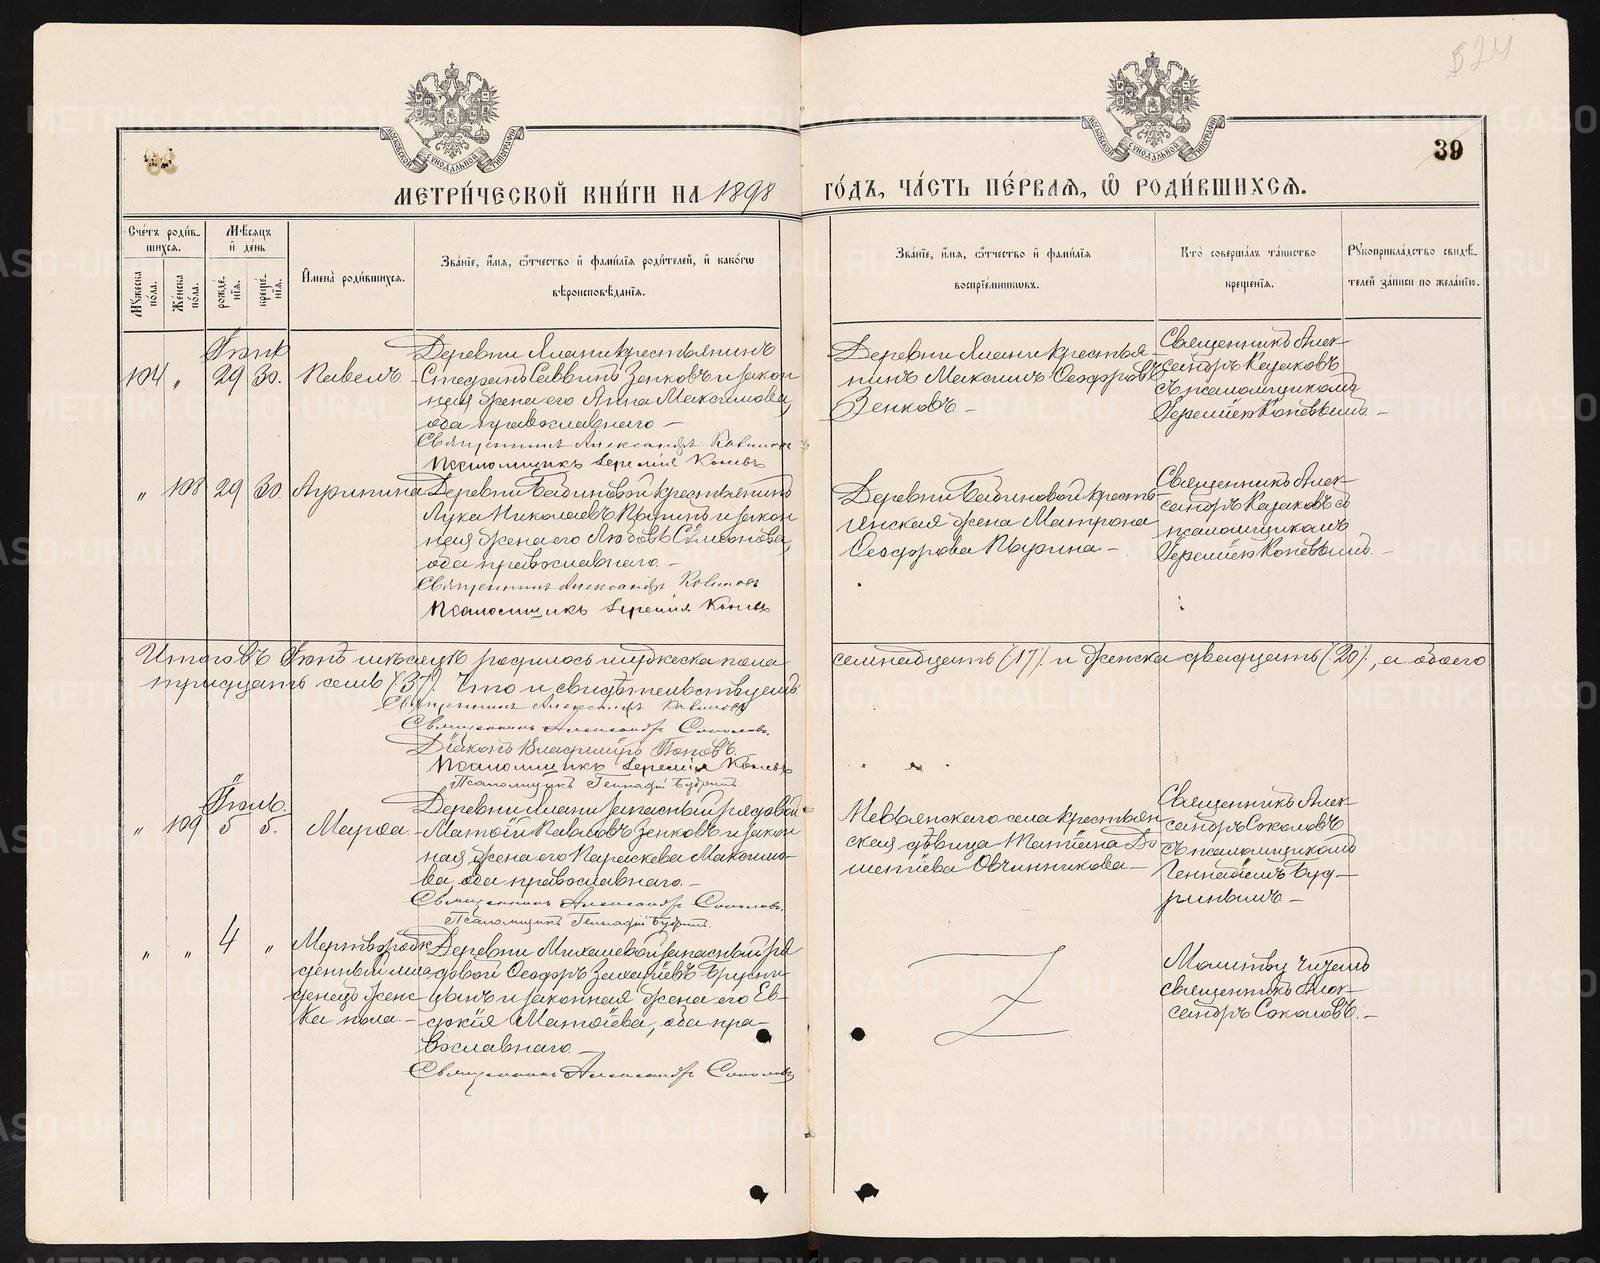 324
39
МЕТРИ́ЧЕСКОЙ КНИ́ГИ НА 1898 ГО́ДЪ, ЧА́СТЬ ПЕ́РВАѦ, Ѽ РОДИ́ВШИХСѦ.
Сче́тъ роди́в-
шихсѧ.
Мѣсѧцъ
и҆ де́нь
Мꙋ́жеска по́ла.
Же́нска по́ла.
рожде-
нїѧ.
креще-
нїѧ.
И҆мена̀ роди́вшихсѧ.
Зва́нїе, и҆́мѧ, ѻ҆́тчество и҆ фами́лїѧ роди́телей, и҆ како́гѡ
вѣроисповѣ́данїѧ.
Зва́нїе, и҆́мѧ, ѻ҆́тчество и҆ фами́лїѧ
воспрїе́мникѡвъ.
Кто̀ соверша́лъ та́инство
креще́нїѧ.
Рꙋкоприкла́дство свидѣ́-
телей за́писи по жела́нїю.
Іюнь
104 " 29 30. Павелъ
Деревни Ялани крестьянинъ
Стефанъ Саввинъ Зенковъ и закон
ная жена его Анна Максимова,
оба православнаго –
Священникъ Александръ Казаковъ
Псаломщикъ Іеремія Копевъ
Деревни Ялани крестья-
нинъ Максимъ Ѳеодоровъ
Зенковъ –
Священникъ Алек-
сандръ Казаковъ
съ псаломщикомъ
Іереміею Копевымъ –
" 108 29 30. Агрипина
Деревни Бабиновой крестьянинъ
Лука Николаевъ Пыринъ и закон
ная жена его Любовь Сѵмеонова,
оба православнаго. –
Священникъ Александръ Казаковъ
Псаломщикъ Іеремія Копевъ
Деревни Бабиновой кресть
янская жена Матрона
Ѳеодорова Пырина –
Священникъ Алек-
сандръ Казаковъ съ
псаломщикомъ
Іереміею Копевымъ. –
Итого въ Іюнѣ мѣсяцѣ родилось мужеска пола семнадцать (17). и женска двадцать (20)., а обоего
тридцать семь (37). Что и свидѣтельствуемъ:
Священникъ Александръ Казаковъ
Священникъ Александръ Соколовъ.
Діаконъ Владиміръ Поповъ.
Псаломщикъ Іеремія Копевъ
Псаломщикъ Геннадій Будринъ.
Іюль.
" 109 5 5. Марѳа.
Деревни Ялани запасный рядовой
Матѳій Павловъ Зенковъ и закон
ная жена его Параскева Максимо-
ва, оба православнаго. –
Священникъ Александръ Соколовъ.
Псаломщикъ Геннадій Будринъ.
Невьянскаго села крестьян
ская дѣвица Татіана До
метіева Овчинникова –
Священникъ Алек-
сандръ Соколовъ
съ псаломщикомъ
Геннадіемъ Буд-
ринымъ –
" " 4 "
Мертворож
денный мла
денецъ женс
ка пола. –
Деревни Михалевой запасный ря
довой Ѳеодоръ Захаріевъ Брусни-
цынъ и законная жена его Ев-
докія Матѳіева, оба пра-
вославнаго –
Священникъ Александръ Соколовъ
Молитву читалъ
священникъ Алек-
сандръ Соколовъ. –